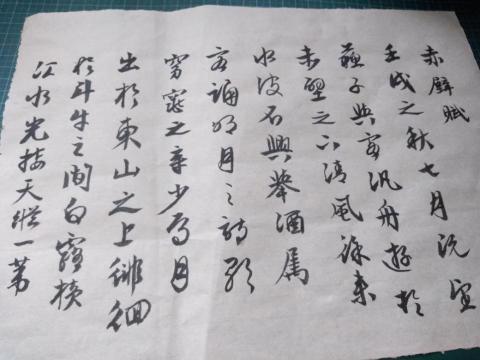 赤壁賦
壬戌之秋七月既望
蘇子與客汎舟遊於
赤壁之下清風徐來
水波不興舉酒屬
客誦明月之詩歌
窈窕之章少焉月
出於東山之上徘徊
於斗牛之間白露橫
江水光接天縱一葦